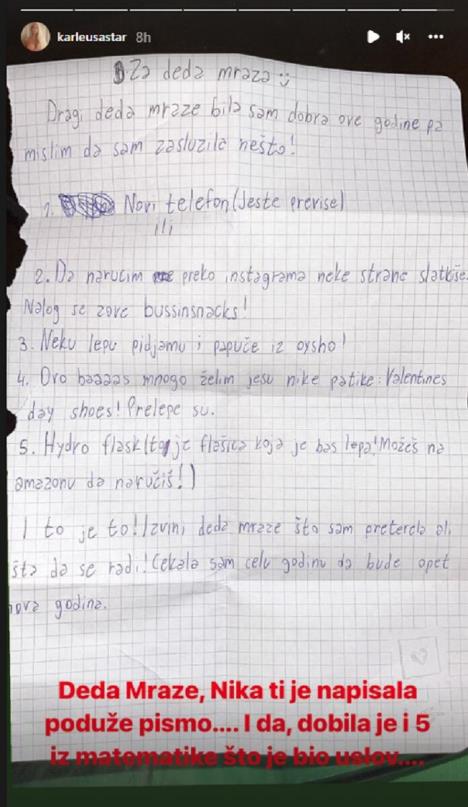 karleusastar 8h
Za deda mraza
Dragi deda mraze bila sam dobra ove godine pa
mislim da sam zaslužila nešto!
1. Novi telefon (Jeste previse)
ili
2. Da narucim preko instagrama neke strane slatkiše.
Nalog se zove bussinsnacks!
3. Neku lepu pidjamu i papuče iz oysho!
4. Ovo baaaas mnogo želim jesu nike patike: Valentines
day shoes! Prelepe su.
5. Hydro flask (to je flašica koja je bas lepa! Možeš na
amazonu da naručiš!)
I to je to! Izvini deda mraze što sam preterala ali
šta da se radi! Cekala sam celu godinu da bude opet
nova godina.
Deda Mraze, Nika ti je napisala
poduže pismo.... I da, dobila je i 5
iz matematike što je bio uslov....